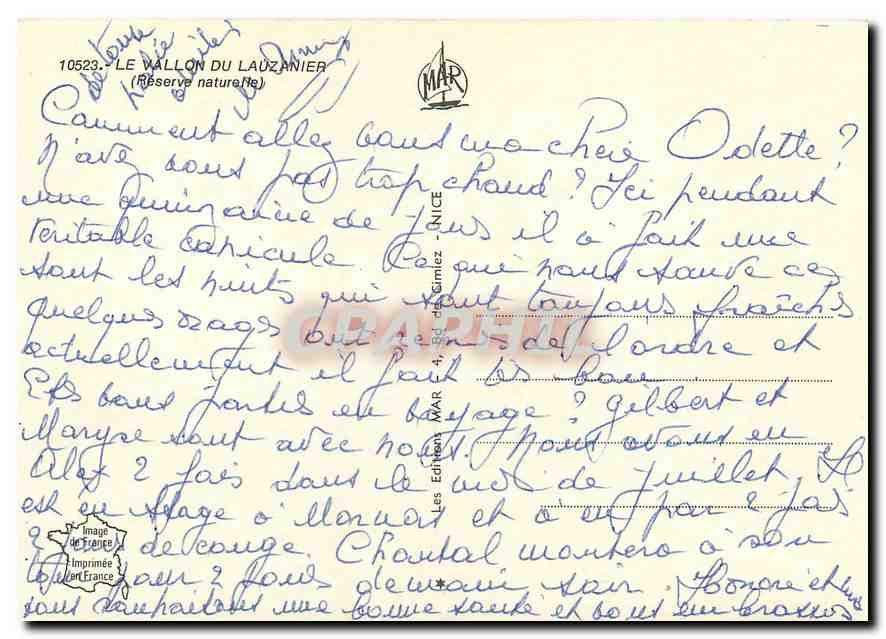 10523.- LE VALLON DU LAUZANIER
(Réserve naturelle)
MAR
Comment allez vous ma chère Odette?
N'avez vous pas trop chaud? Ici pendant
une quinzaine de jours il a fait une
véritable canicule. Ce qui nous sauve ce
sont les nuits qui sont toujours fraîches
quelques orages ont remis de l'ordre et
actuellement il fait très bon.
Etes vous partis en voyage? Gilbert et
Maryse sont avec nous. Nous avons eu
Alex 2 fois dans le mois de juillet. Il
est en stage à et a eu par 2 fois
2 jours de congé. Chantal montera à son
tour pour 2 jours demain soir. Honoré et
vous souhaitons une bonne santé et vous embrassons
de toute
les
Les Editions MAR - 4, Bd de Cimiez - NICE
CPAPHIL
Image
de France
Imprimée
en France